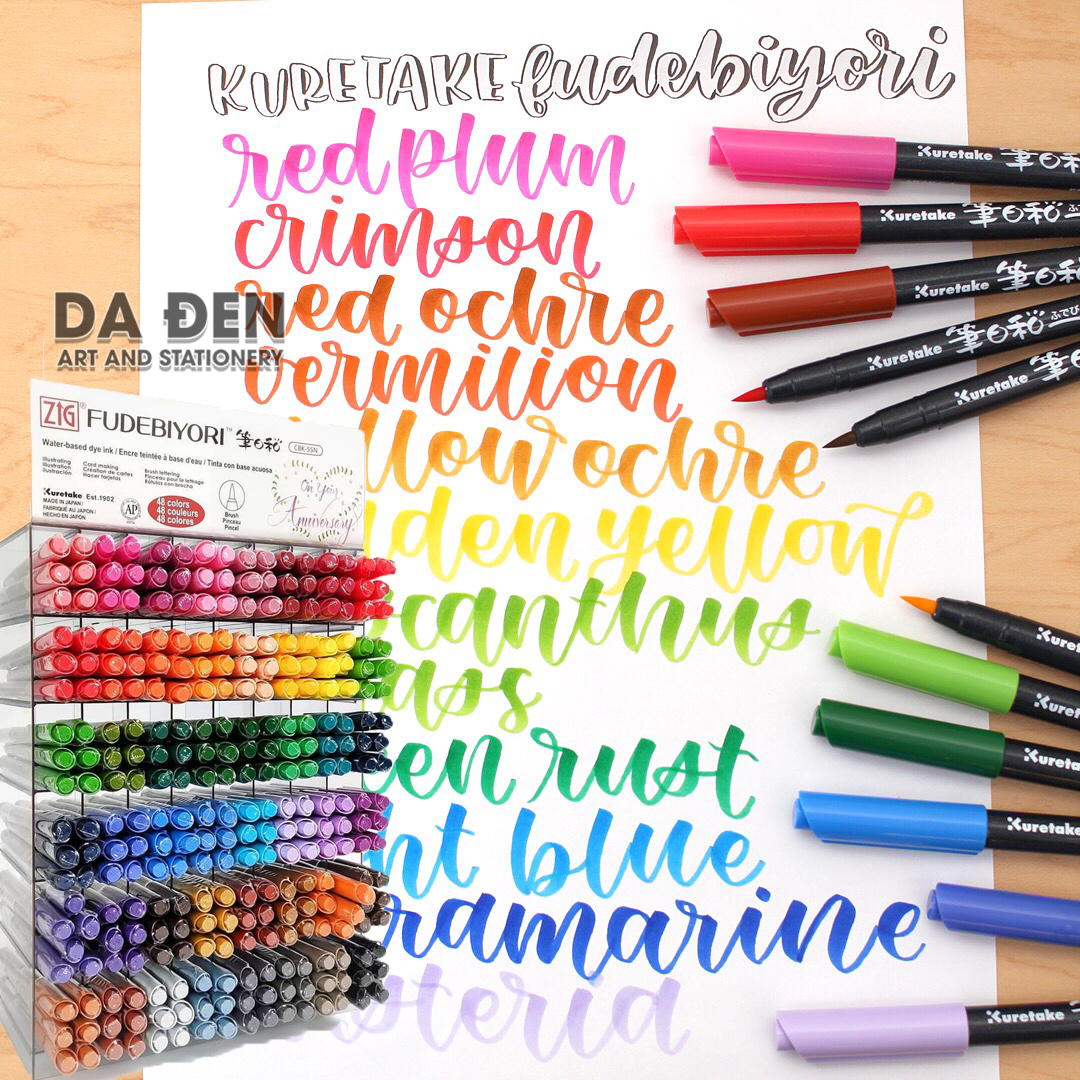 KURETAKE fudebiyori
red plum
crimson
red ochre
vermilion
llow ochre
lden yellow
canthus
ass
en rust
nt blue
ramarine
steria
DA ĐEN
ART AND STATIONERY
ZIG® FUDEBIYORI™ 筆日和 CBK-55N
Water-based dye ink / Encre teintée à base d'eau / Tinta con base acuosa
Illustrating
Illustration
Ilustración
Card making
Création de cartes
Hacer tarjetas
Brush lettering
Pinceau pour le lettrage
Rótulos con brocha
Kuretake Est.1902
MADE IN JAPAN/
FABRIQUÉ AU JAPON/
HECHO EN JAPÓN
AP
48 colors
48 couleurs
48 colores
Brush
Pinceau
Pincel
On Your
Anniversary
Kuretake 筆日和
Kuretake 筆日和
Kuretake 筆日和
Kuretake 筆日和
Kuretake 筆
Kureta
Kureta
Kureta
Kuretake
Kuretake